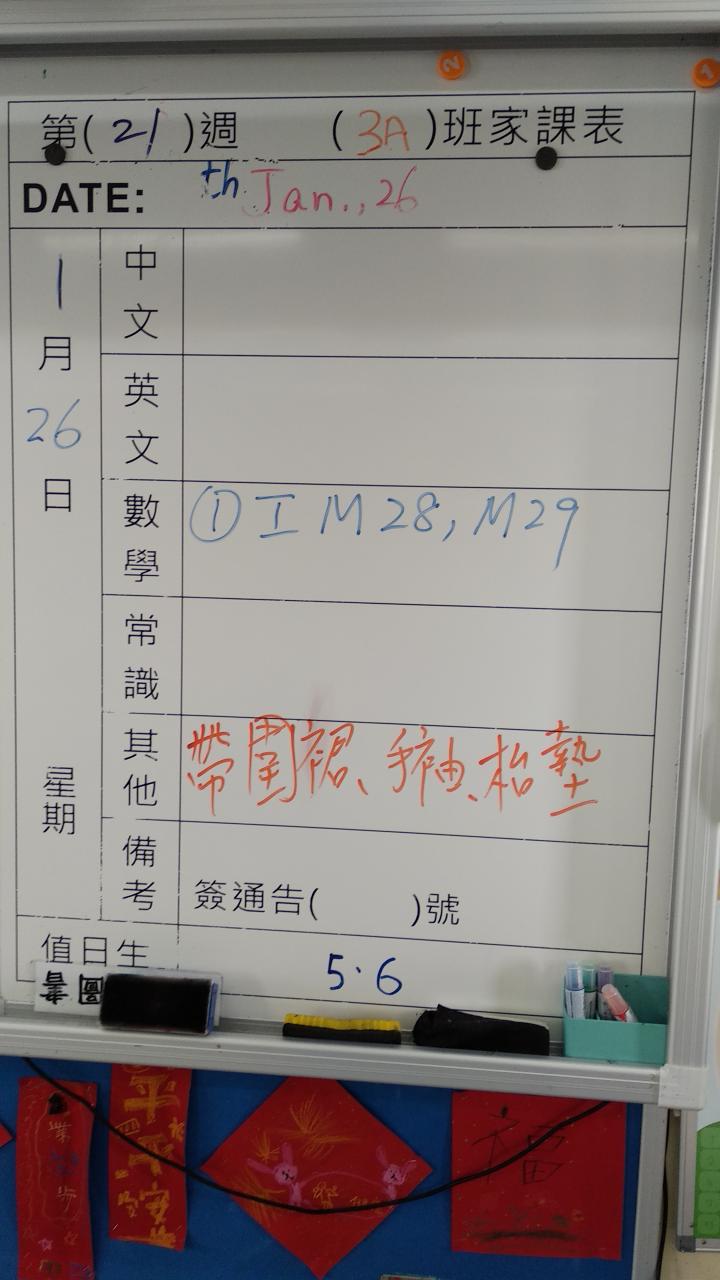 第(21)週 (3A)班家課表
DATE: th Jan., 26
1月26日
星期
中文
英文
數學 ① 工 M28, M29
常識
其他 帶圍裙、手袖、枱墊
備考 簽通告( )號
值日生 5.6
圖書
2
1
業
步
平平安安
福